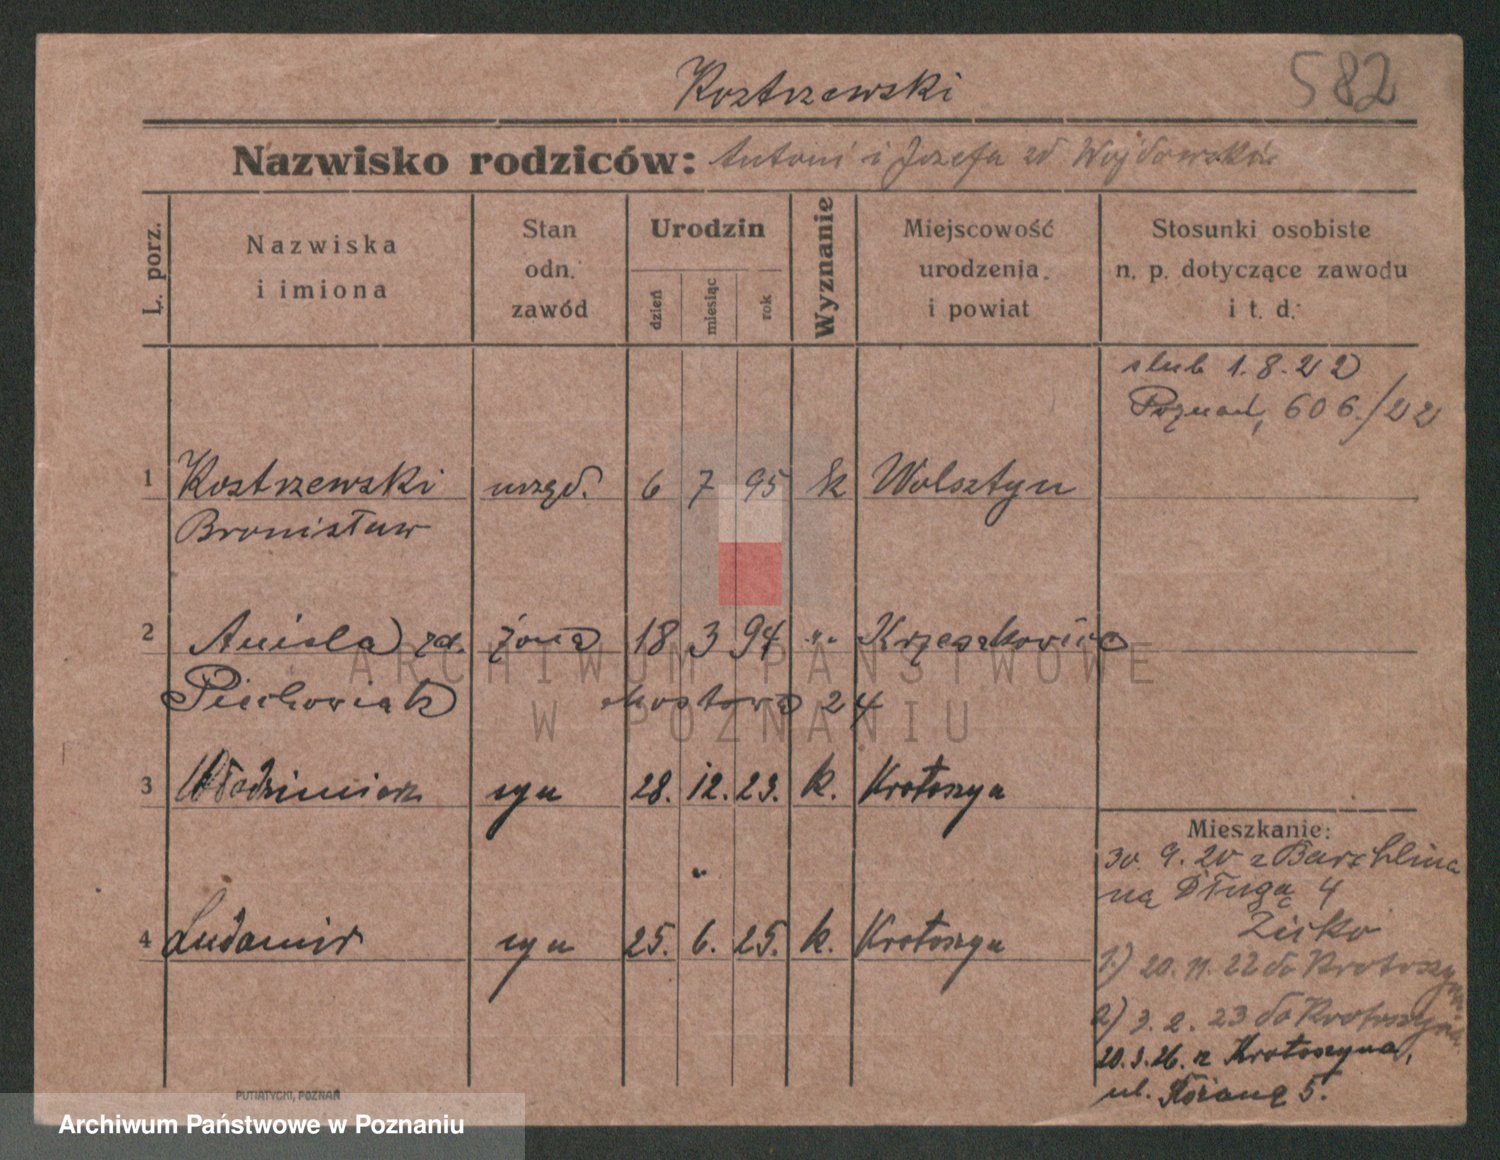 Kostrzewski
582
Nazwisko rodziców: Antoni i Józefa zd Wojdowskich
L. porz.
Nazwiska
i imiona
Stan
odn.
zawód
Urodzin
dzień
miesiąc
rok
Wyznanie
Miejscowość
urodzenia
i powiat
Stosunki osobiste
n. p. dotyczące zawodu
i t. d.
slub 1.8.22
Poznań, 606./22
1 Kostrzewski urzęd. 6 7 95 k Wolsztyn
Bronisław
2 Aniela zd. żona 18 3 94 "
Piechowiak Mostowa 24
3 Włodzimierz syn 28. 12. 23. k. Krotoszyn
Mieszkanie:
30. 9. 20 z Barchlina
na Długą 4
4 Ludomir syn 25. 6. 25. k. Krotoszyn
1.) 20. 11. 22 do Krotoszyna
2) 3. 2. 23 do Krotoszyna
20.3.26. z Krotoszyna,
ul. Różana 5.
PUTIATYCKI, POZNAŃ
ARCHIWUM PAŃSTWOWE
W POZNANIU
Archiwum Państwowe w Poznaniu